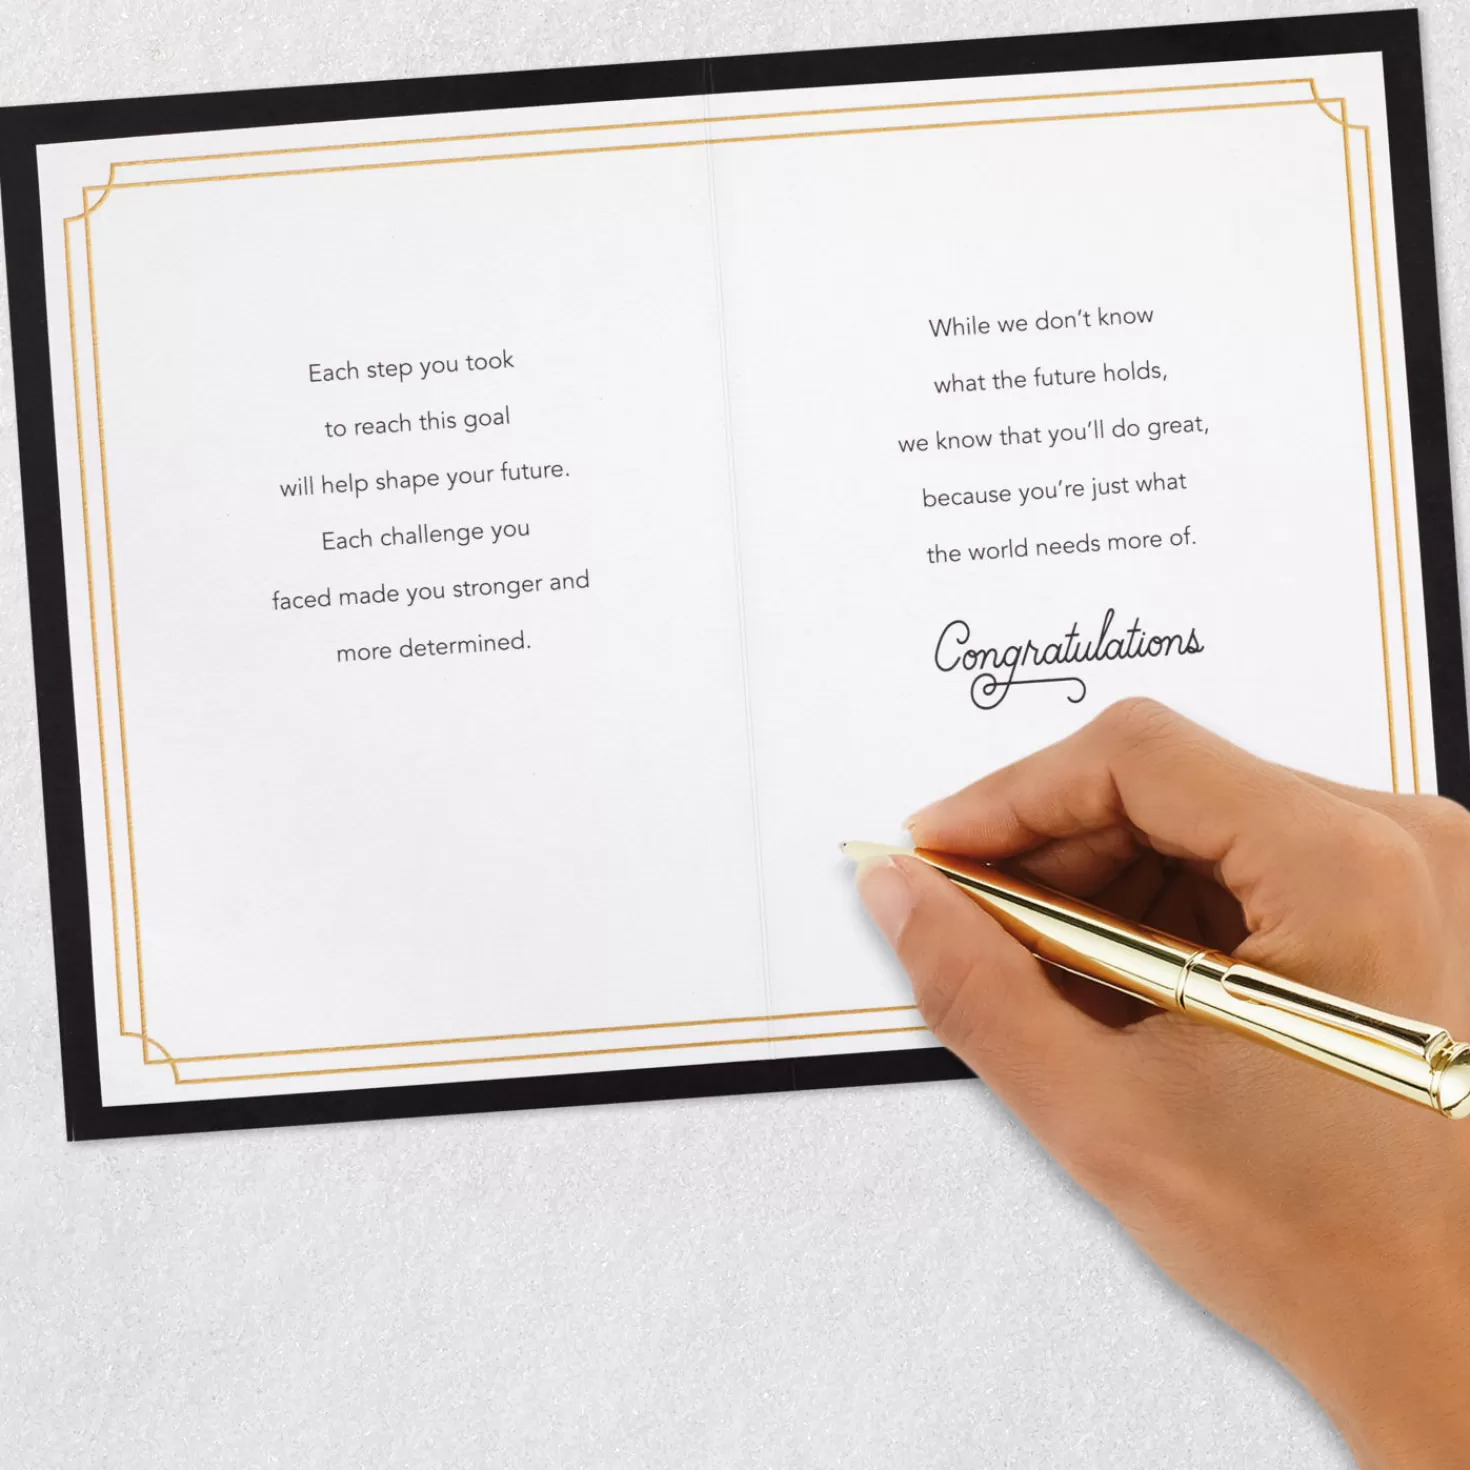 Each step you took
to reach this goal
will help shape your future.
Each challenge you
faced made you stronger and
more determined.
While we don’t know
what the future holds,
we know that you’ll do great,
because you’re just what
the world needs more of.
Congratulations